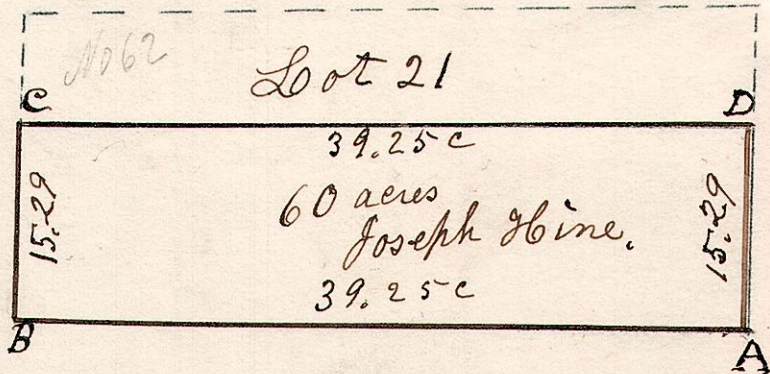 No 62
Lot 21
C
D
39.25 c
15.29
60 acres
15.29
Joseph Hine.
39.25 c
B
A